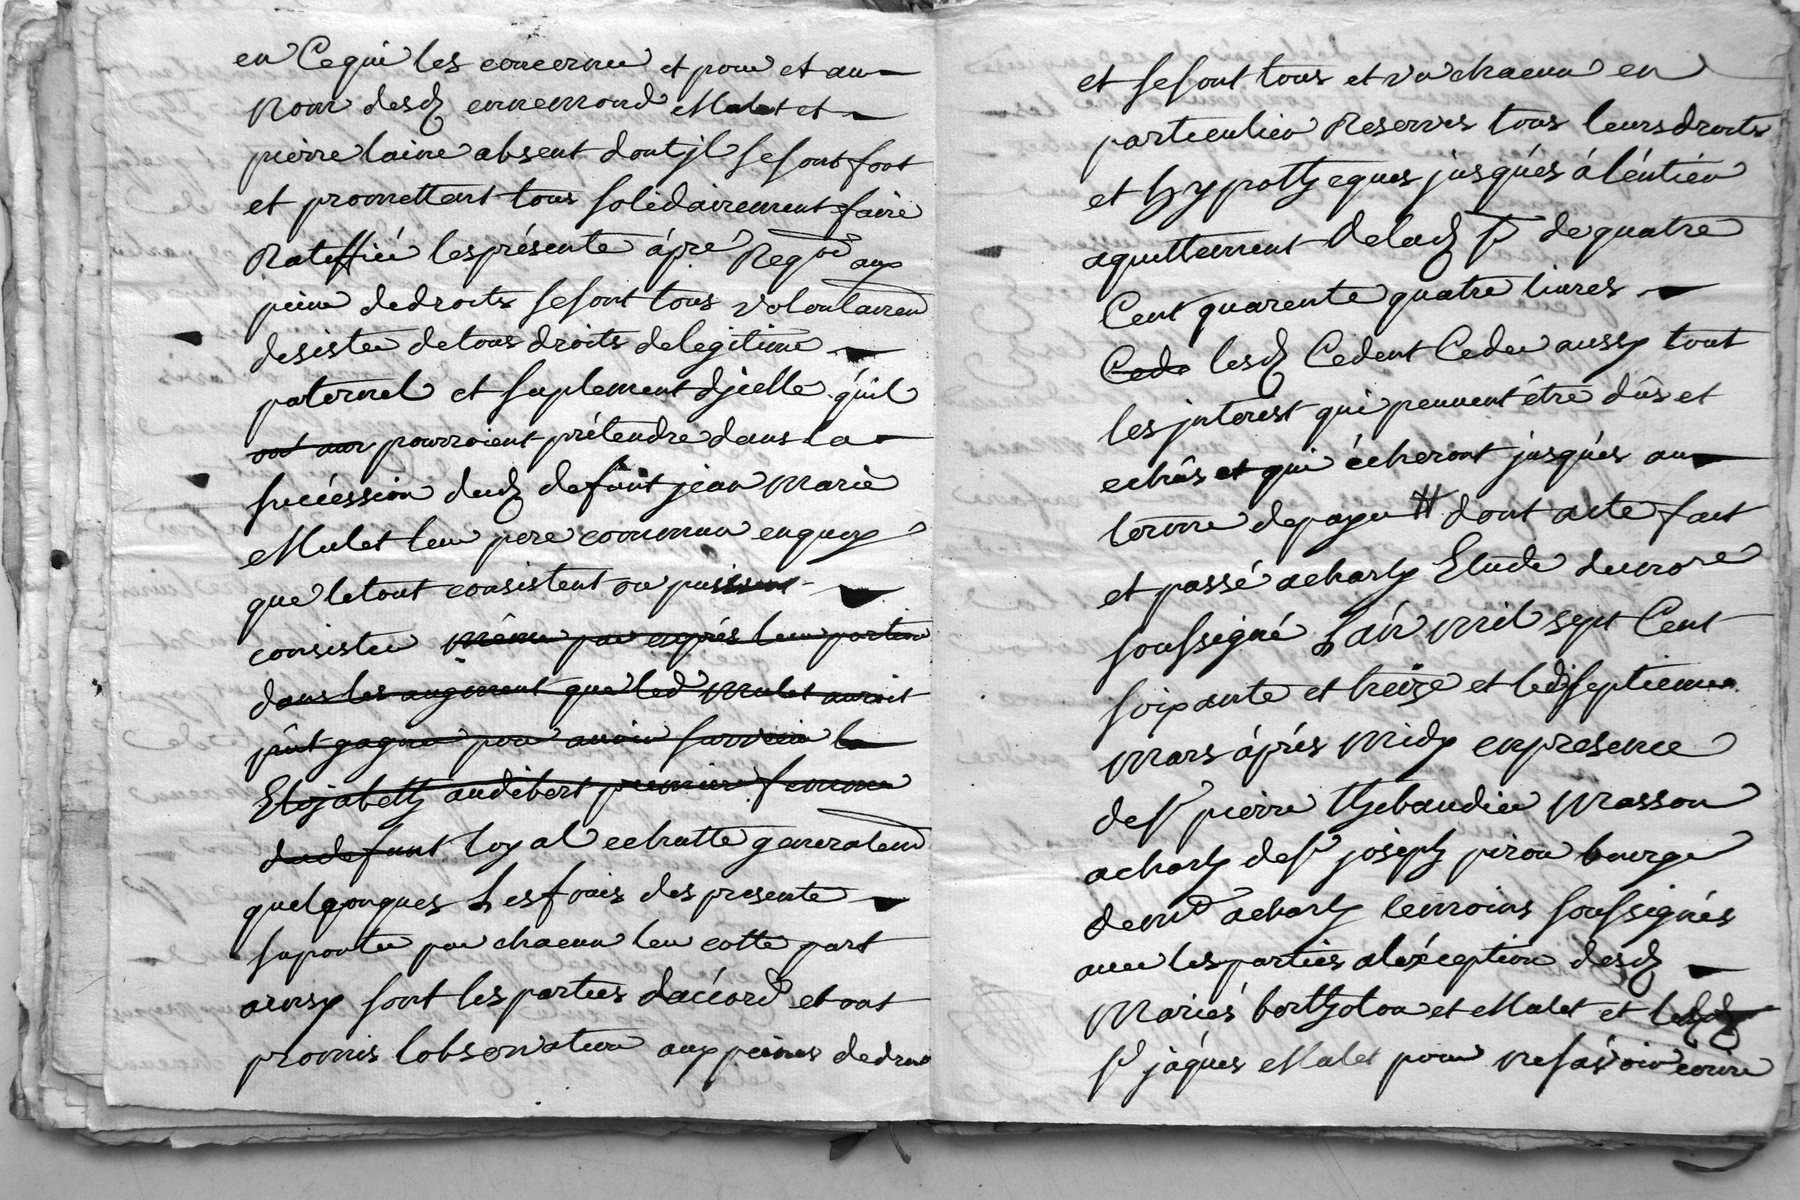 en Cequi les concerne et pour et au
Nom desd ennemond Mulet et
pierre laine absent dont jl sesont fort
et promettent tous solidairement faire
Ratiffiée lesprésente ápré Reqon aux
peine dedroits sesont tous volontairem
desistée detous droits delegitime
paternel et suplement djcelle quil
ont aux pourroient prétendre dans la
succéssion dud defunt jean Marie
Mulet leur pere commun enquoy
que letout consistent ou puissent
consistée même par exprés leur portion
dans les augment que led Mulet auroit
pût gagner pour auoir surveü la
Elizabeth audibert premiere femme
dudefunt loyal echutte generalem
quelqonques Les frais des presente
suportée par chacun leur cotte part
ainsy sont les parties daccord et ont
promis lobservation aux peines dedroit
et sesont tous et vn chacun en
particulier Reservés tous leurs droits
et hypotheques jusqués á léntier
aquittement delad Sе dequatre
Cent quarente quatre liures
Cede lesd Cedent Cedée aussy tout
les jnterest qui peuuent étre dûs et
echûs et qui écheront jusqués au
terme depayer # dont acte fait
et passé acharly Etude denore
soussigné Lán mil sept Cent
soixante et treize et ledixseptieme
Mars áprés midy enpresence
de sr pierre thebaudier Masson
acharly desr joseph piron bourge
demt acharly temoins soussignés
auec lesparties aléxception desd
Mariés bertholon et Mulet et
sr jaqués Mulet pour nesávoir écrire